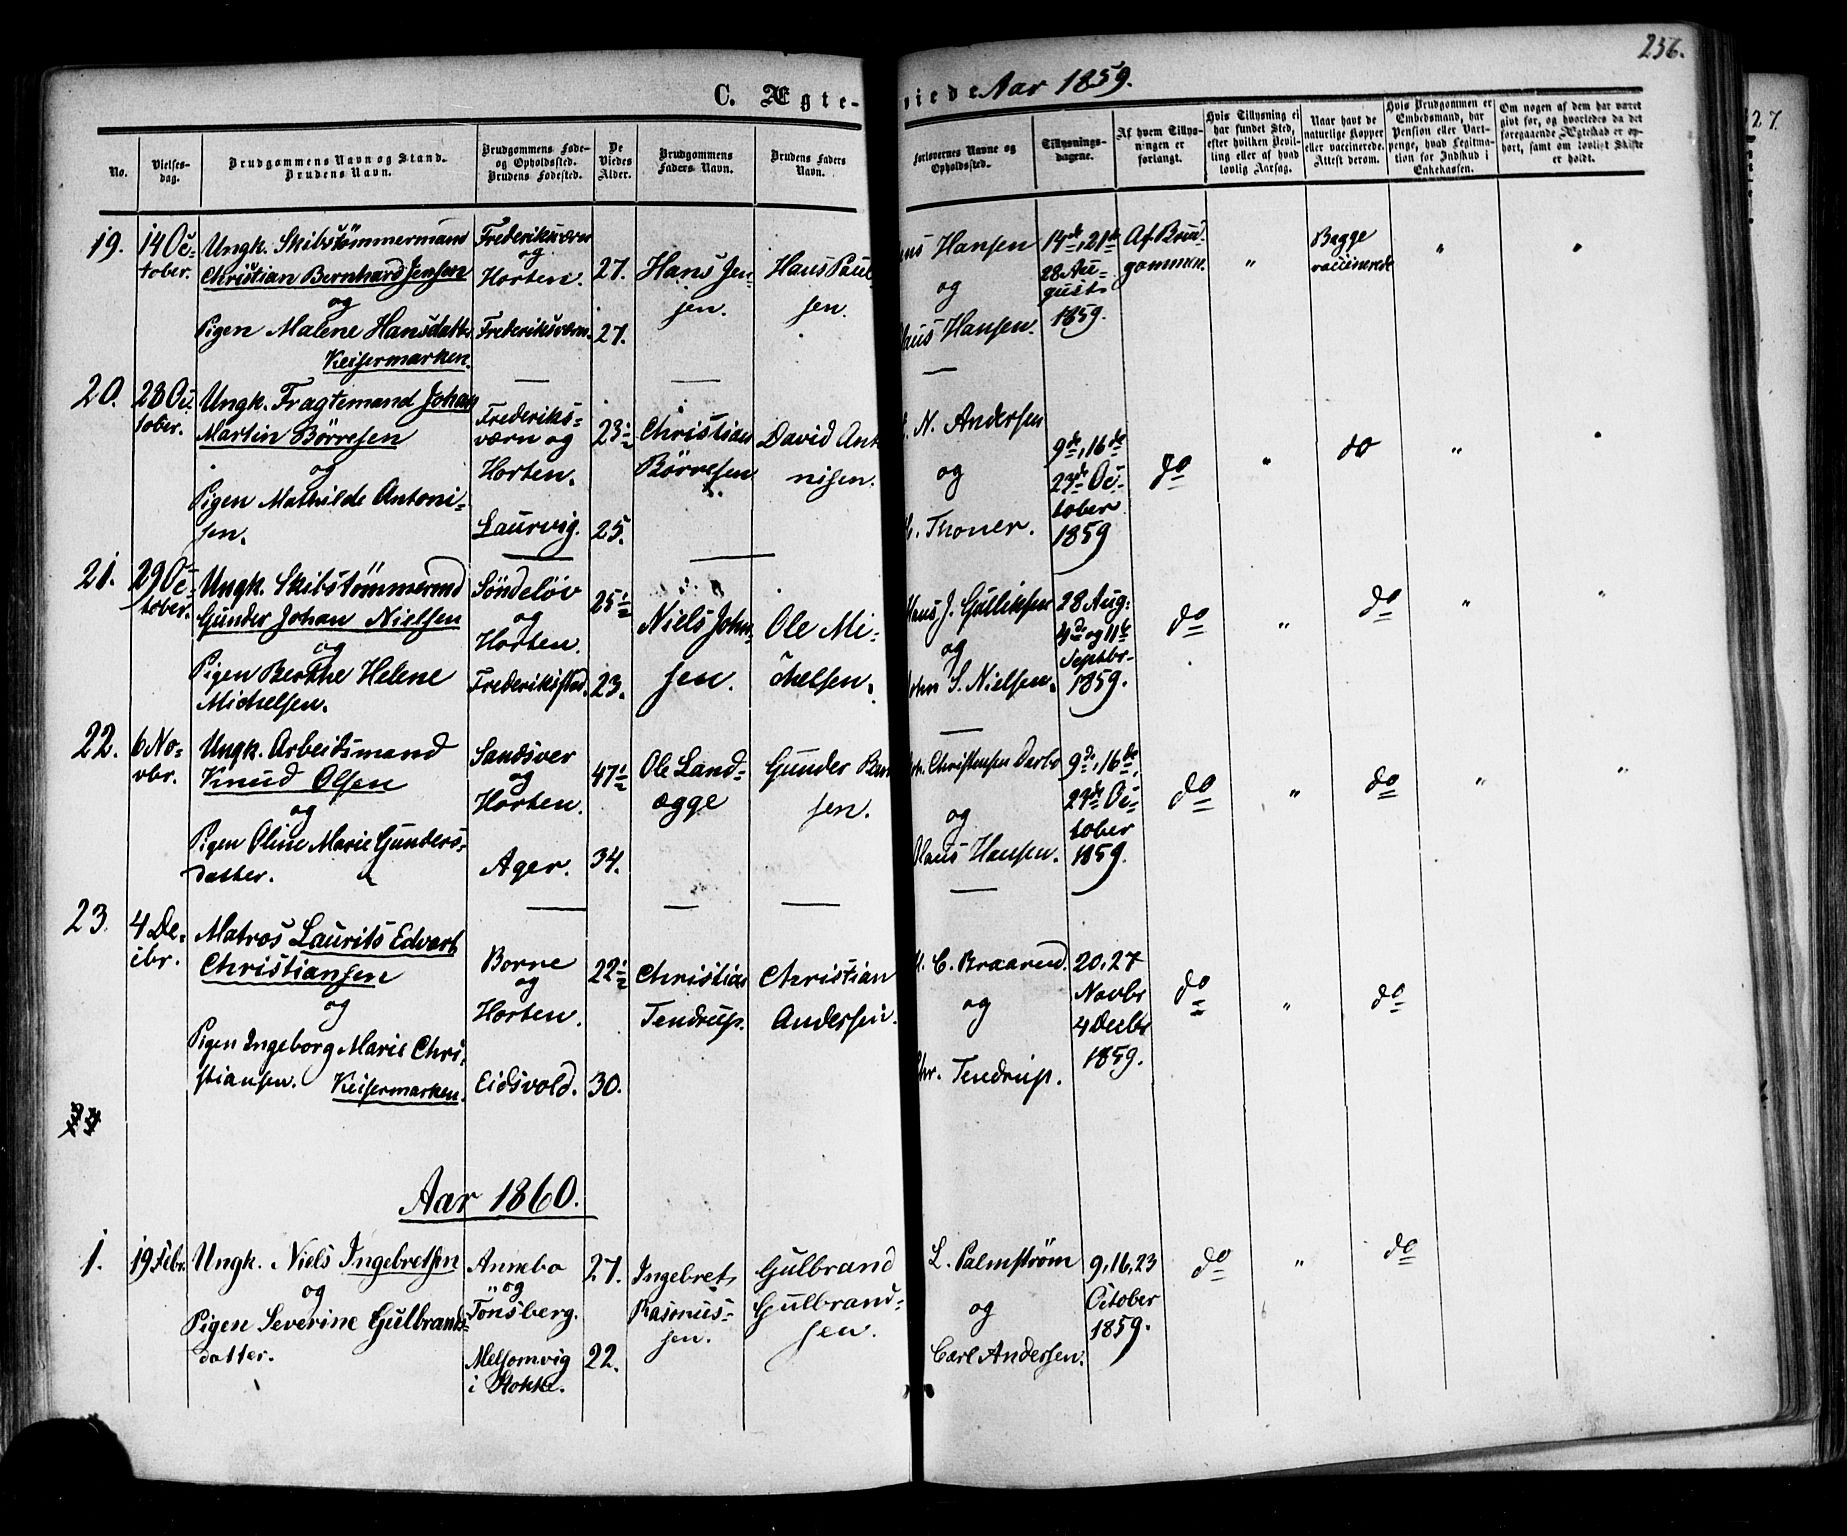 256.
C. Ægte-
viede Aar 1859.
No.
Vielses-
dag.
Brudgommens Navn og Stand.
Brudens Navn.
Brudgommens Føde-
og Opholdssted.
Brudens Fødested.
De
Viedes
Alder.
Brudgommens
Faders Navn.
Brudens Faders
Navn.
Forlovernes Navne og
Opholdssted.
Tillysnings-
dagene.
Af hvem Tillys-
ningen er
forlangt.
Hvis Tillysning ei
har fundet Sted,
efter hvilken Bevil-
ling eller af hvad
lovlig Aarsag.
Naar havt de
naturlige Kopper
eller vaccinerede.
Attest derom.
Hvis Brudgommen er
Embedsmand, har
Pension eller Vart-
penge, hvad Legitma-
tion for Indskud i
Enkekassen.
Om nogen af dem har været
givt for, og hvorledes da det
foregaaende Ægteskab er op-
hørt, samt om lovligt Skifte
er holdt.
19.
14 Oc-
tober.
Ungk. Skibstömmermand
Christian Bernhard Jensen
og
Pigen Malene Hansdatter
Keisermarken.
Frederiksværn
og
Horten.
Frederiksværn.
27.
27.
Hans Jen-
sen.
Hans Paul-
sen.
Hansen
og
Hansen.
14de, 21de
28 Au-
gust
1859.
Af Brud-
gommen.
"
Begge
vaccinerede
"
"
20.
28 Oc-
tober.
Ungk. Fragtemand Johan
Martin Börresen
og
Pigen Mathilde Antoni-
sen.
Frederiks-
værn og
Horten.
Laurvig.
23½
25.
Christian
Börresen
David Ant
nisen.
N. Andersen
og
Troner.
9de, 16de
23de Oc-
tober
1859
do
"
do
"
"
21.
29 Oc-
tober.
Ungk. Skibstömmermd
Gunder Johan Nielsen
og
Pigen Berthe Helene
Michelsen.
Söndelöv
og
Horten.
Frederikstad.
25½
23.
Niels John-
sen.
Ole Mi-
chelsen.
Hans J. Gulliksen
og
John S. Nielsen.
28 Aug:
4de og 11te
Septbr
1859.
do
"
do
"
"
22.
6 No-
vbr.
Ungk. Arbeidsmand
Knud Olsen
og
Pigen Oline Marie Gunders-
datter.
Sandsver
og
Horten.
Ager.
47½
34.
Ole Land-
ægge
Gunder
sen.
Christensen Darbo
og
Olaus Hansen.
9de, 16de,
23de Oc-
tober
1859.
do
"
do
"
"
23.
4 De-
cbr.
Matros Laurits Edvart
Christiansen
og
Pigen Ingeborg Marie Chri-
stiansen. Keisermarken.
Borre
og
Horten.
Eidsvold.
22½
30.
Christian
Tendrup.
Christian
Andersen.
C. Braarud.
og
Chr. Tendrup.
20, 27
Novbr
4 Decbr
1859.
do
"
do
Aar 1860.
1.
19 Febr.
Ungk. Niels Ingebretsen
og
Pigen Severine Gulbrands-
datter.
Annebo
og
Tonsberg.
Melsomvig
i Stokke.
27.
22.
Ingebret
Rasmus-
sen.
Gulbrand
Gulbrand-
sen.
L. Palmström
og
Carl Andersen.
9, 16, 23
October
1859.
do
"
do